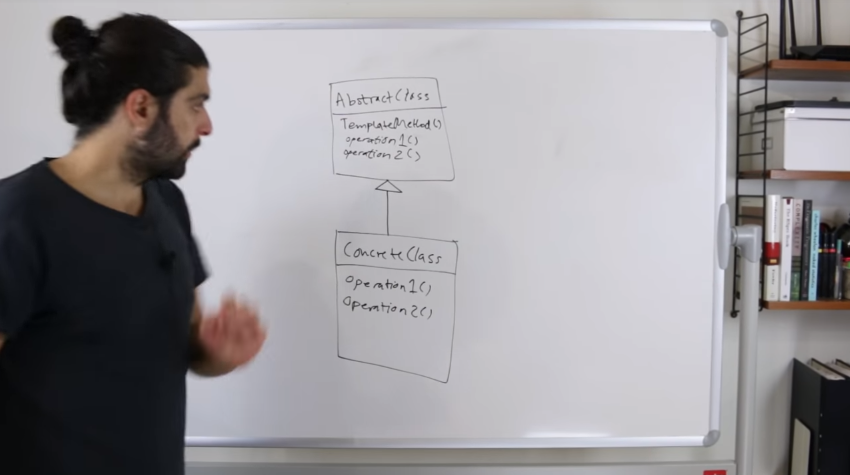 AbstractClass
TemplateMethod()
operation1()
operation2()
ConcreteClass
operation1()
Operation2()